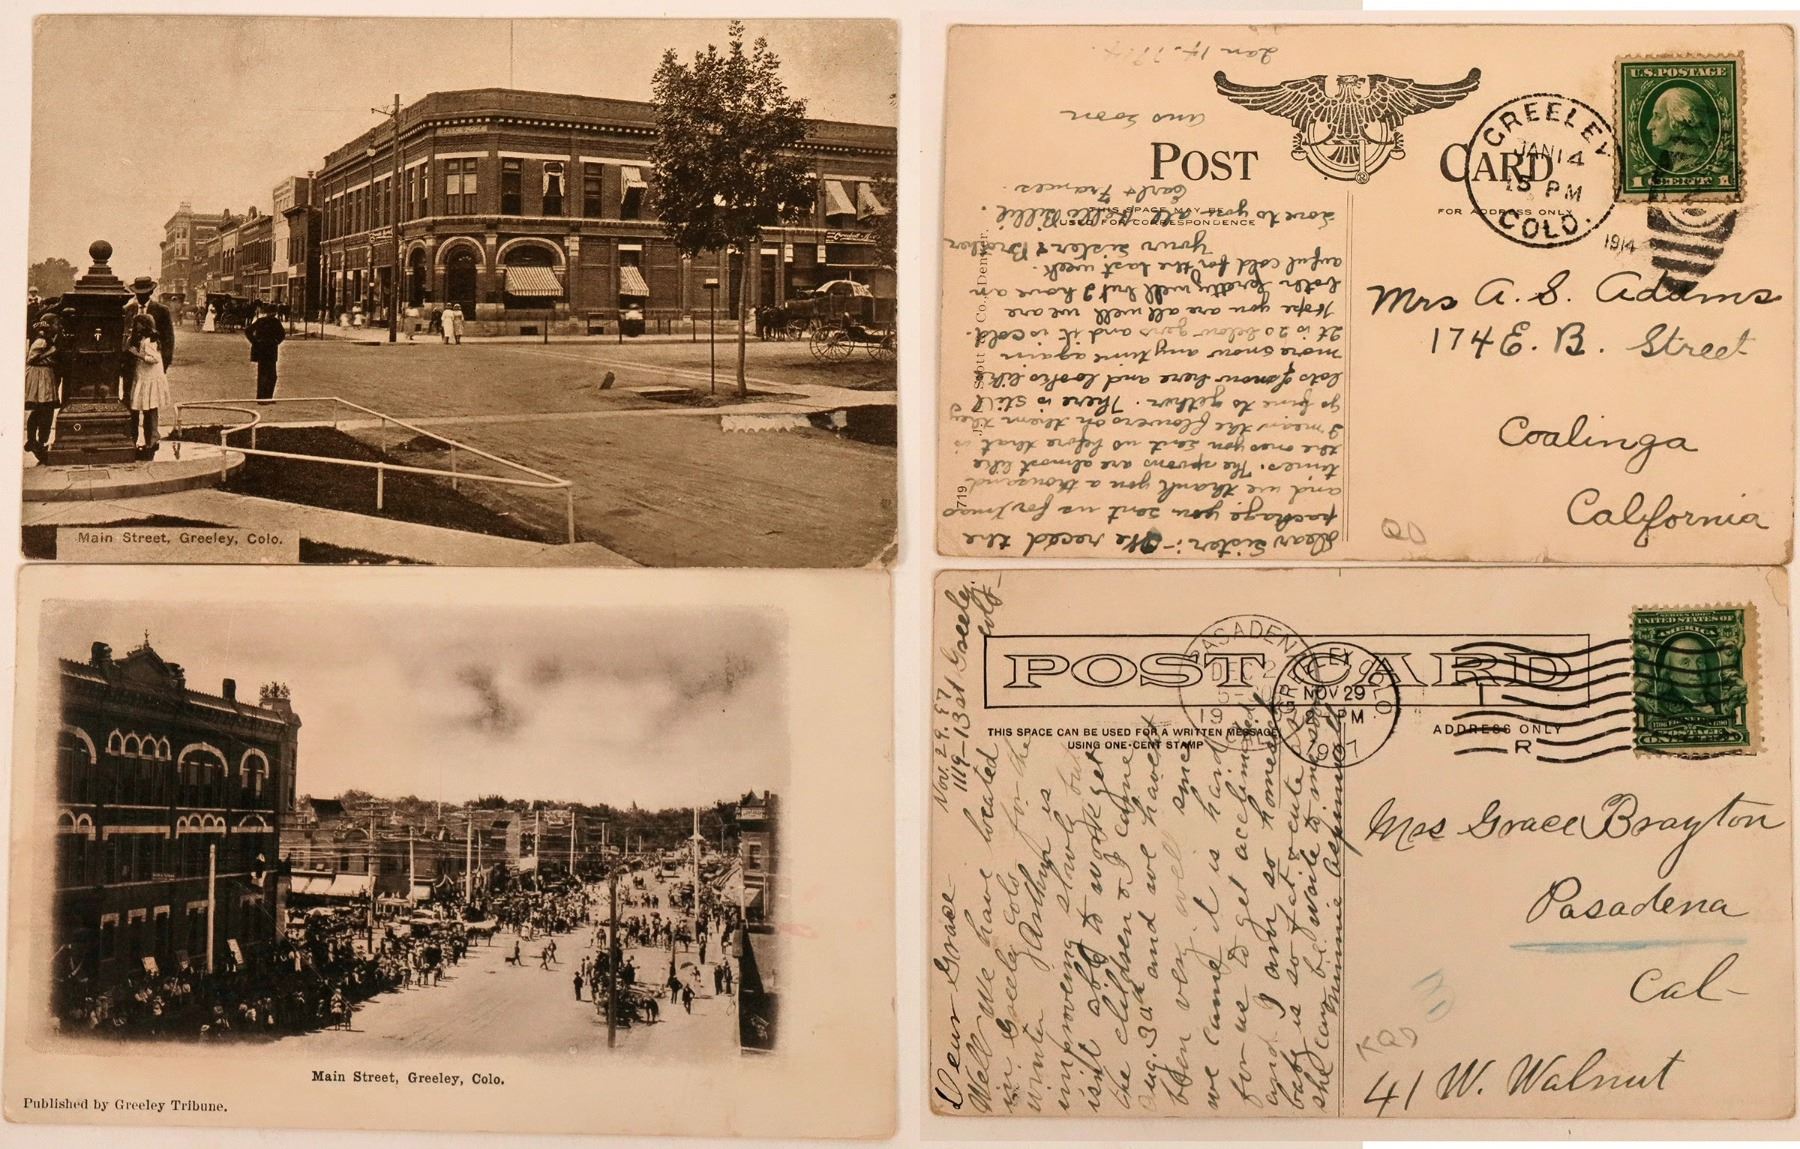 Main Street, Greeley, Colo.
Main Street, Greeley, Colo.
Published by Greeley Tribune.
Jan 14, 1914.
POST CARD
THIS SPACE MAY BE
USED FOR CORRESPONDENCE
FOR ADDRESS ONLY
U.S. POSTAGE
1 CENT 1
GREELEY
JAN 14
PM
COLO.
1914
Mrs A. S. Adams
174 E. B. Street
Coalinga
California
719
Scott Co., Denver.
Dear Sister:- We reced the
package you sent us for Xmas
and we thank you a thousand
times. The spoons are almost like
the ones you sent us before that is
I mean the flowers on them they
go fine to gether. There is still
lots of snow here and looks like
more snow any time again
It is 20 below zero and it is cold.
Hope you are all well we are
both pretty well but I have an
awful cold for the last week.
Your Sister & Brother
Love to you all
Earl & Frances.
Ans Soon
POST CARD
THIS SPACE CAN BE USED FOR A WRITTEN MESSAGE
USING ONE-CENT STAMP
ADDRESS ONLY
PASADENA
DEC 2
GREELEY COLO
NOV 29
PM
1907
R
UNITED STATES OF
AMERICA
Mrs Grace Brayton
Pasadena
Cal-
41 W. Walnut
Nov. 29. 07
1119-13 st Greeley.
Colo-
Dear Grace
Well we have located
in Greeley Colo for the
winter Arthur is
improving slowly but
isnt able to work yet
the children & I came
Aug. 3d and we havent
been very well since
we came it is hard
for us to get acclimated
and I am so homesick
baby is so fat & cute